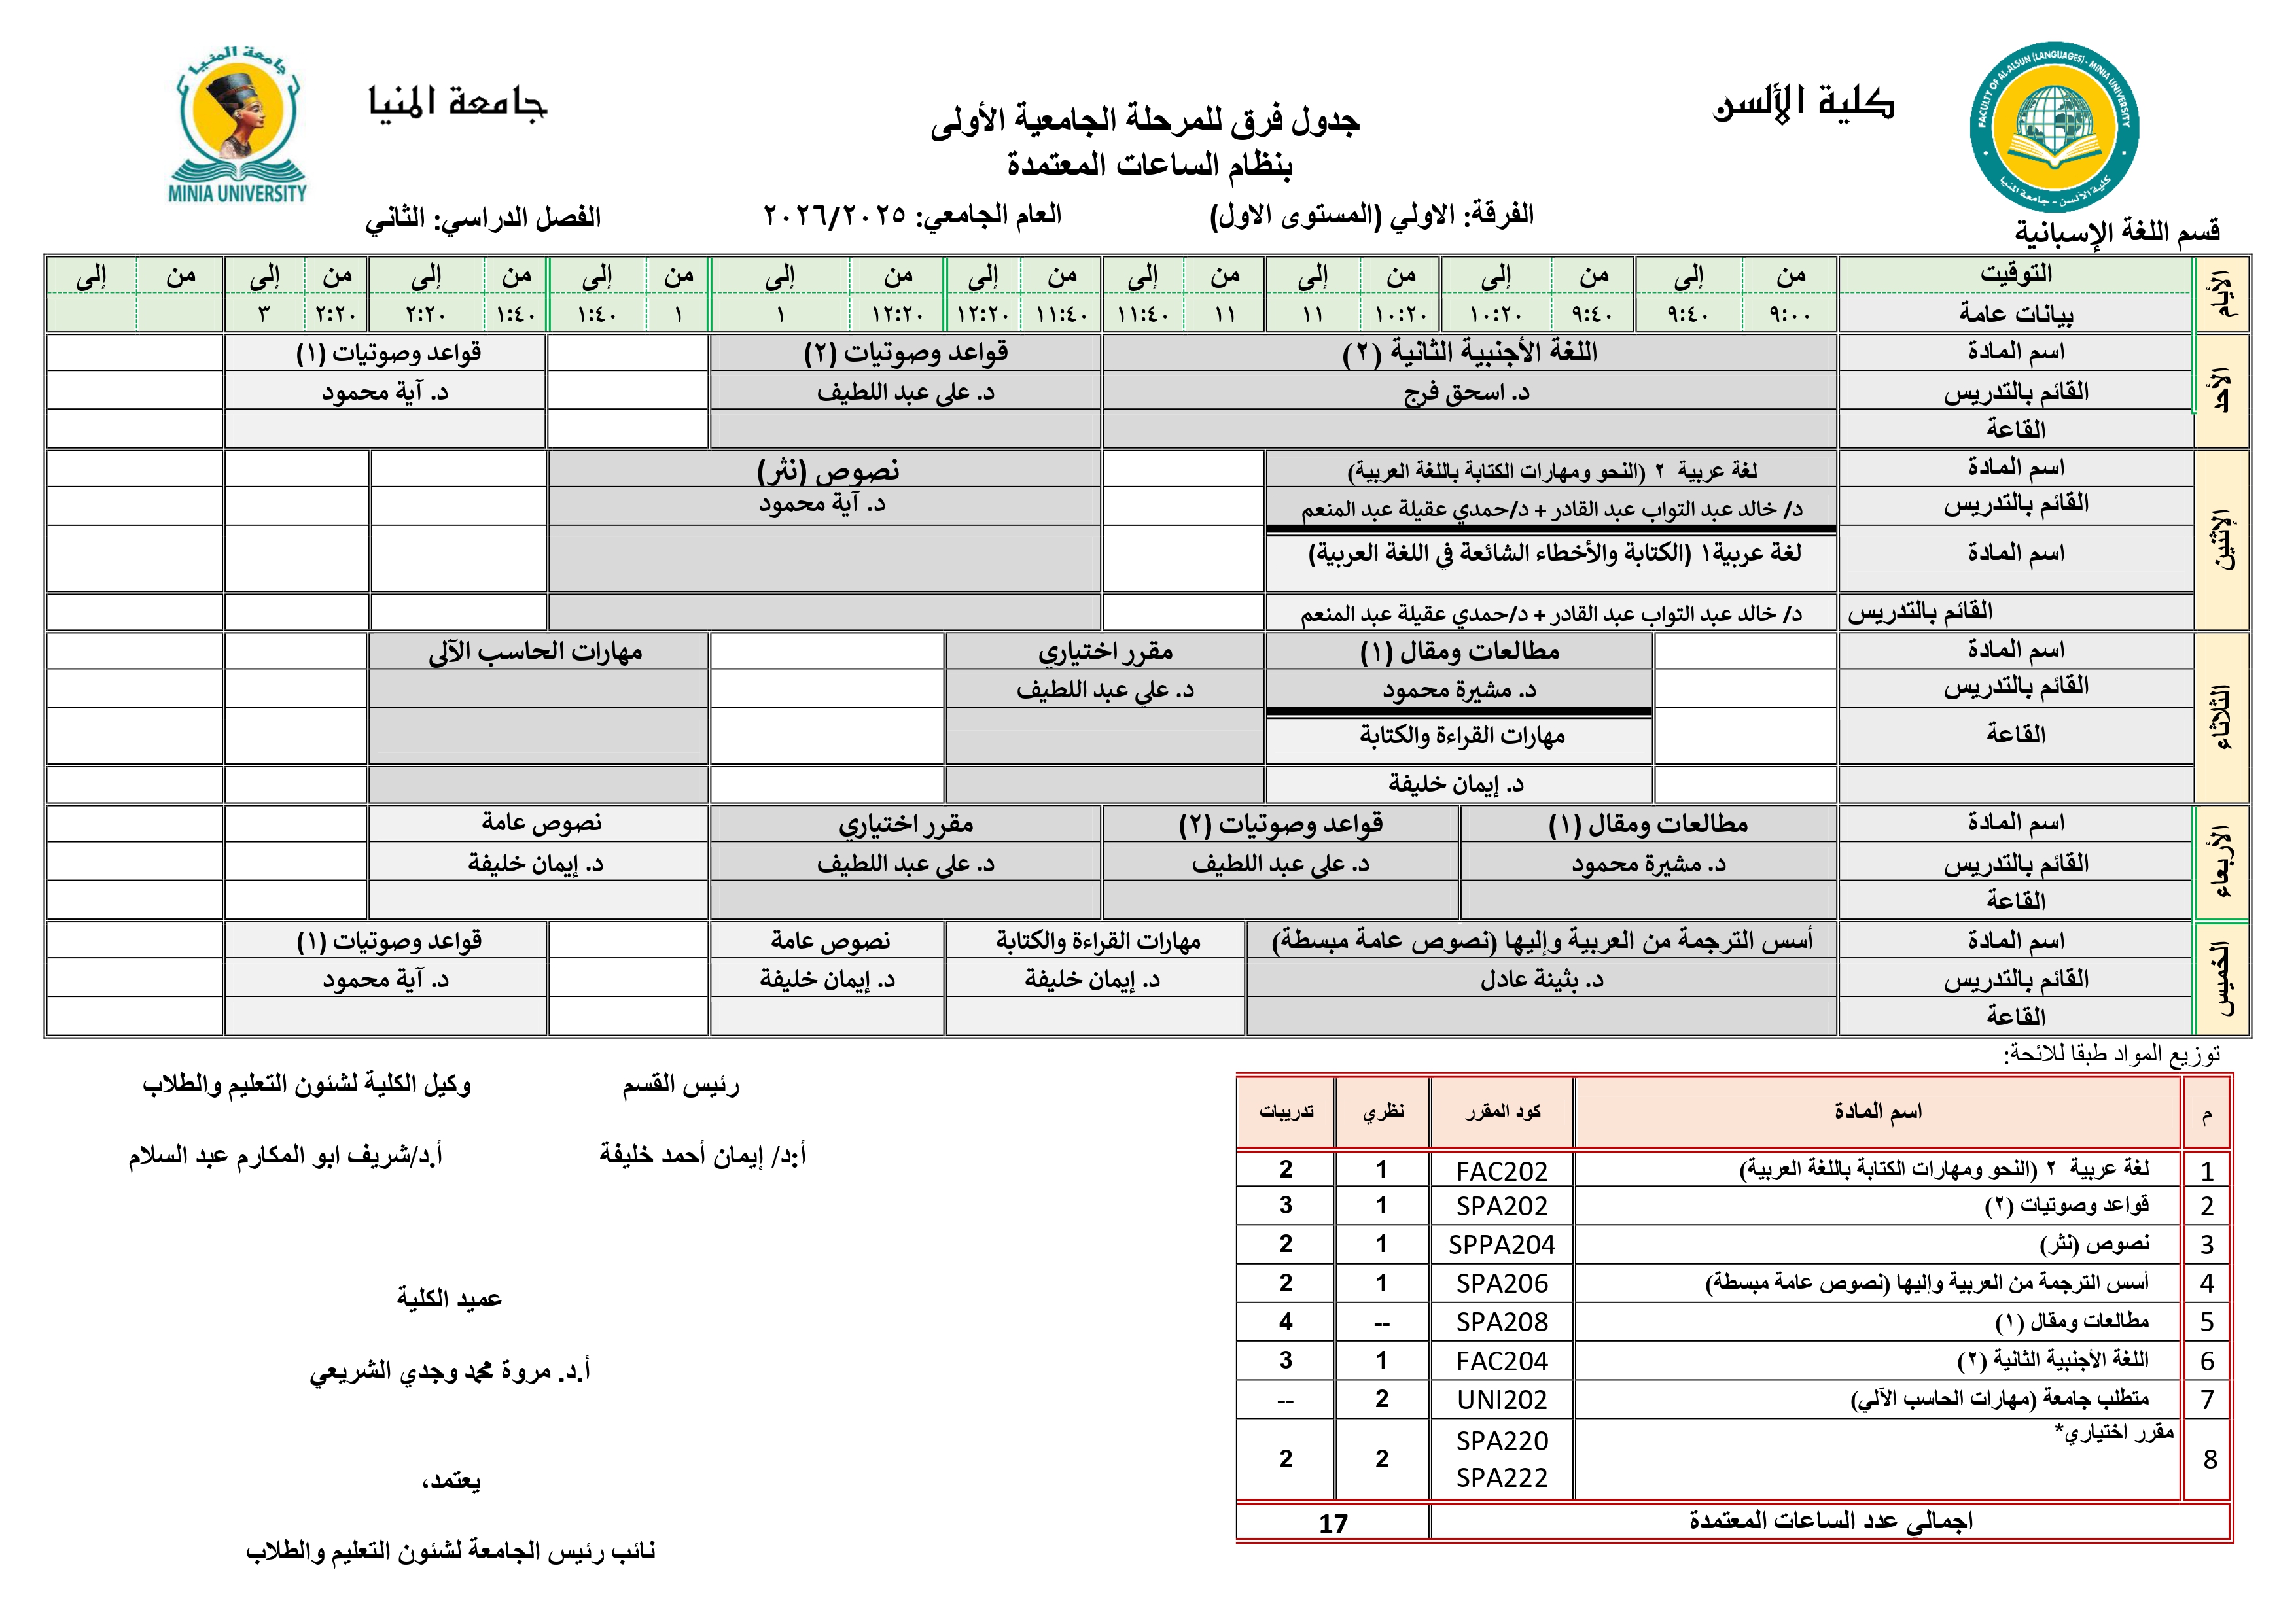 جامعة المنيا
MINIA UNIVERSITY
جامعة المنيا
جدول فرق للمرحلة الجامعية الأولى
بنظام الساعات المعتمدة
كلية الألسن
FACULTY OF AL-ALSUN (LANGUAGES) - MINIA UNIVERSITY
كلية الألسن - جامعة المنيا
قسم اللغة الإسبانية
الفرقة: الاولي (المستوى الاول)
العام الجامعي: ٢٠٢٦/٢٠٢٥
الفصل الدراسي: الثاني
الأيام
التوقيت من إلى من إلى من إلى من إلى من إلى من إلى من إلى من إلى من إلى من إلى
بيانات عامة ٩:٠٠ ٩:٤٠ ٩:٤٠ ١٠:٢٠ ١٠:٢٠ ١١ ١١ ١١:٤٠ ١١:٤٠ ١٢:٢٠ ١٢:٢٠ ١ ١ ١:٤٠ ١:٤٠ ٢:٢٠ ٢:٢٠ ٣
الأحد
اسم المادة اللغة الأجنبية الثانية (٢) قواعد وصوتيات (٢) قواعد وصوتيات (١)
القائم بالتدريس د. اسحق فرج د. على عبد اللطيف د. آية محمود
القاعة
الإثنين
اسم المادة لغة عربية ٢ (النحو ومهارات الكتابة باللغة العربية) نصوص (نثر)
القائم بالتدريس د/ خالد عبد التواب عبد القادر + د/حمدي عقيلة عبد المنعم د. آية محمود
اسم المادة لغة عربية١ (الكتابة والأخطاء الشائعة في اللغة العربية)
القائم بالتدريس د/ خالد عبد التواب عبد القادر + د/حمدي عقيلة عبد المنعم
الثلاثاء
اسم المادة مطالعات ومقال (١) مقرر اختياري مهارات الحاسب الآلى
القائم بالتدريس د. مشيرة محمود د. علي عبد اللطيف
القاعة مهارات القراءة والكتابة
د. إيمان خليفة
الأربعاء
اسم المادة مطالعات ومقال (١) قواعد وصوتيات (٢) مقرر اختياري نصوص عامة
القائم بالتدريس د. مشيرة محمود د. على عبد اللطيف د. على عبد اللطيف د. إيمان خليفة
القاعة
الخميس
اسم المادة أسس الترجمة من العربية وإليها (نصوص عامة مبسطة) مهارات القراءة والكتابة نصوص عامة قواعد وصوتيات (١)
القائم بالتدريس د. بثينة عادل د. إيمان خليفة د. إيمان خليفة د. آية محمود
القاعة
توزيع المواد طبقا للائحة:
م اسم المادة كود المقرر نظري تدريبات
1 لغة عربية ٢ (النحو ومهارات الكتابة باللغة العربية) FAC202 1 2
2 قواعد وصوتيات (٢) SPA202 1 3
3 نصوص (نثر) SPPA204 1 2
4 أسس الترجمة من العربية وإليها (نصوص عامة مبسطة) SPA206 1 2
5 مطالعات ومقال (١) SPA208 -- 4
6 اللغة الأجنبية الثانية (٢) FAC204 1 3
7 متطلب جامعة (مهارات الحاسب الآلي) UNI202 2 --
8 مقرر اختياري* SPA220 SPA222 2 2
اجمالي عدد الساعات المعتمدة 17
رئيس القسم
أ:د/ إيمان أحمد خليفة
وكيل الكلية لشئون التعليم والطلاب
أ.د/شريف ابو المكارم عبد السلام
عميد الكلية
أ.د. مروة محمد وجدي الشريعي
يعتمد،
نائب رئيس الجامعة لشئون التعليم والطلاب